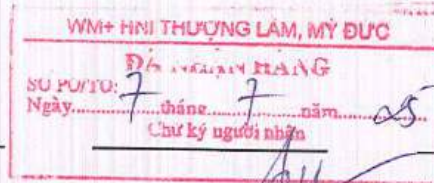 WM+ HNI THƯỢNG LÂM, MỸ ĐỨC
ĐÃ NHẬN HÀNG
SỐ PO/TO:
Ngày 7 tháng 7 năm 25
Chữ ký người nhận